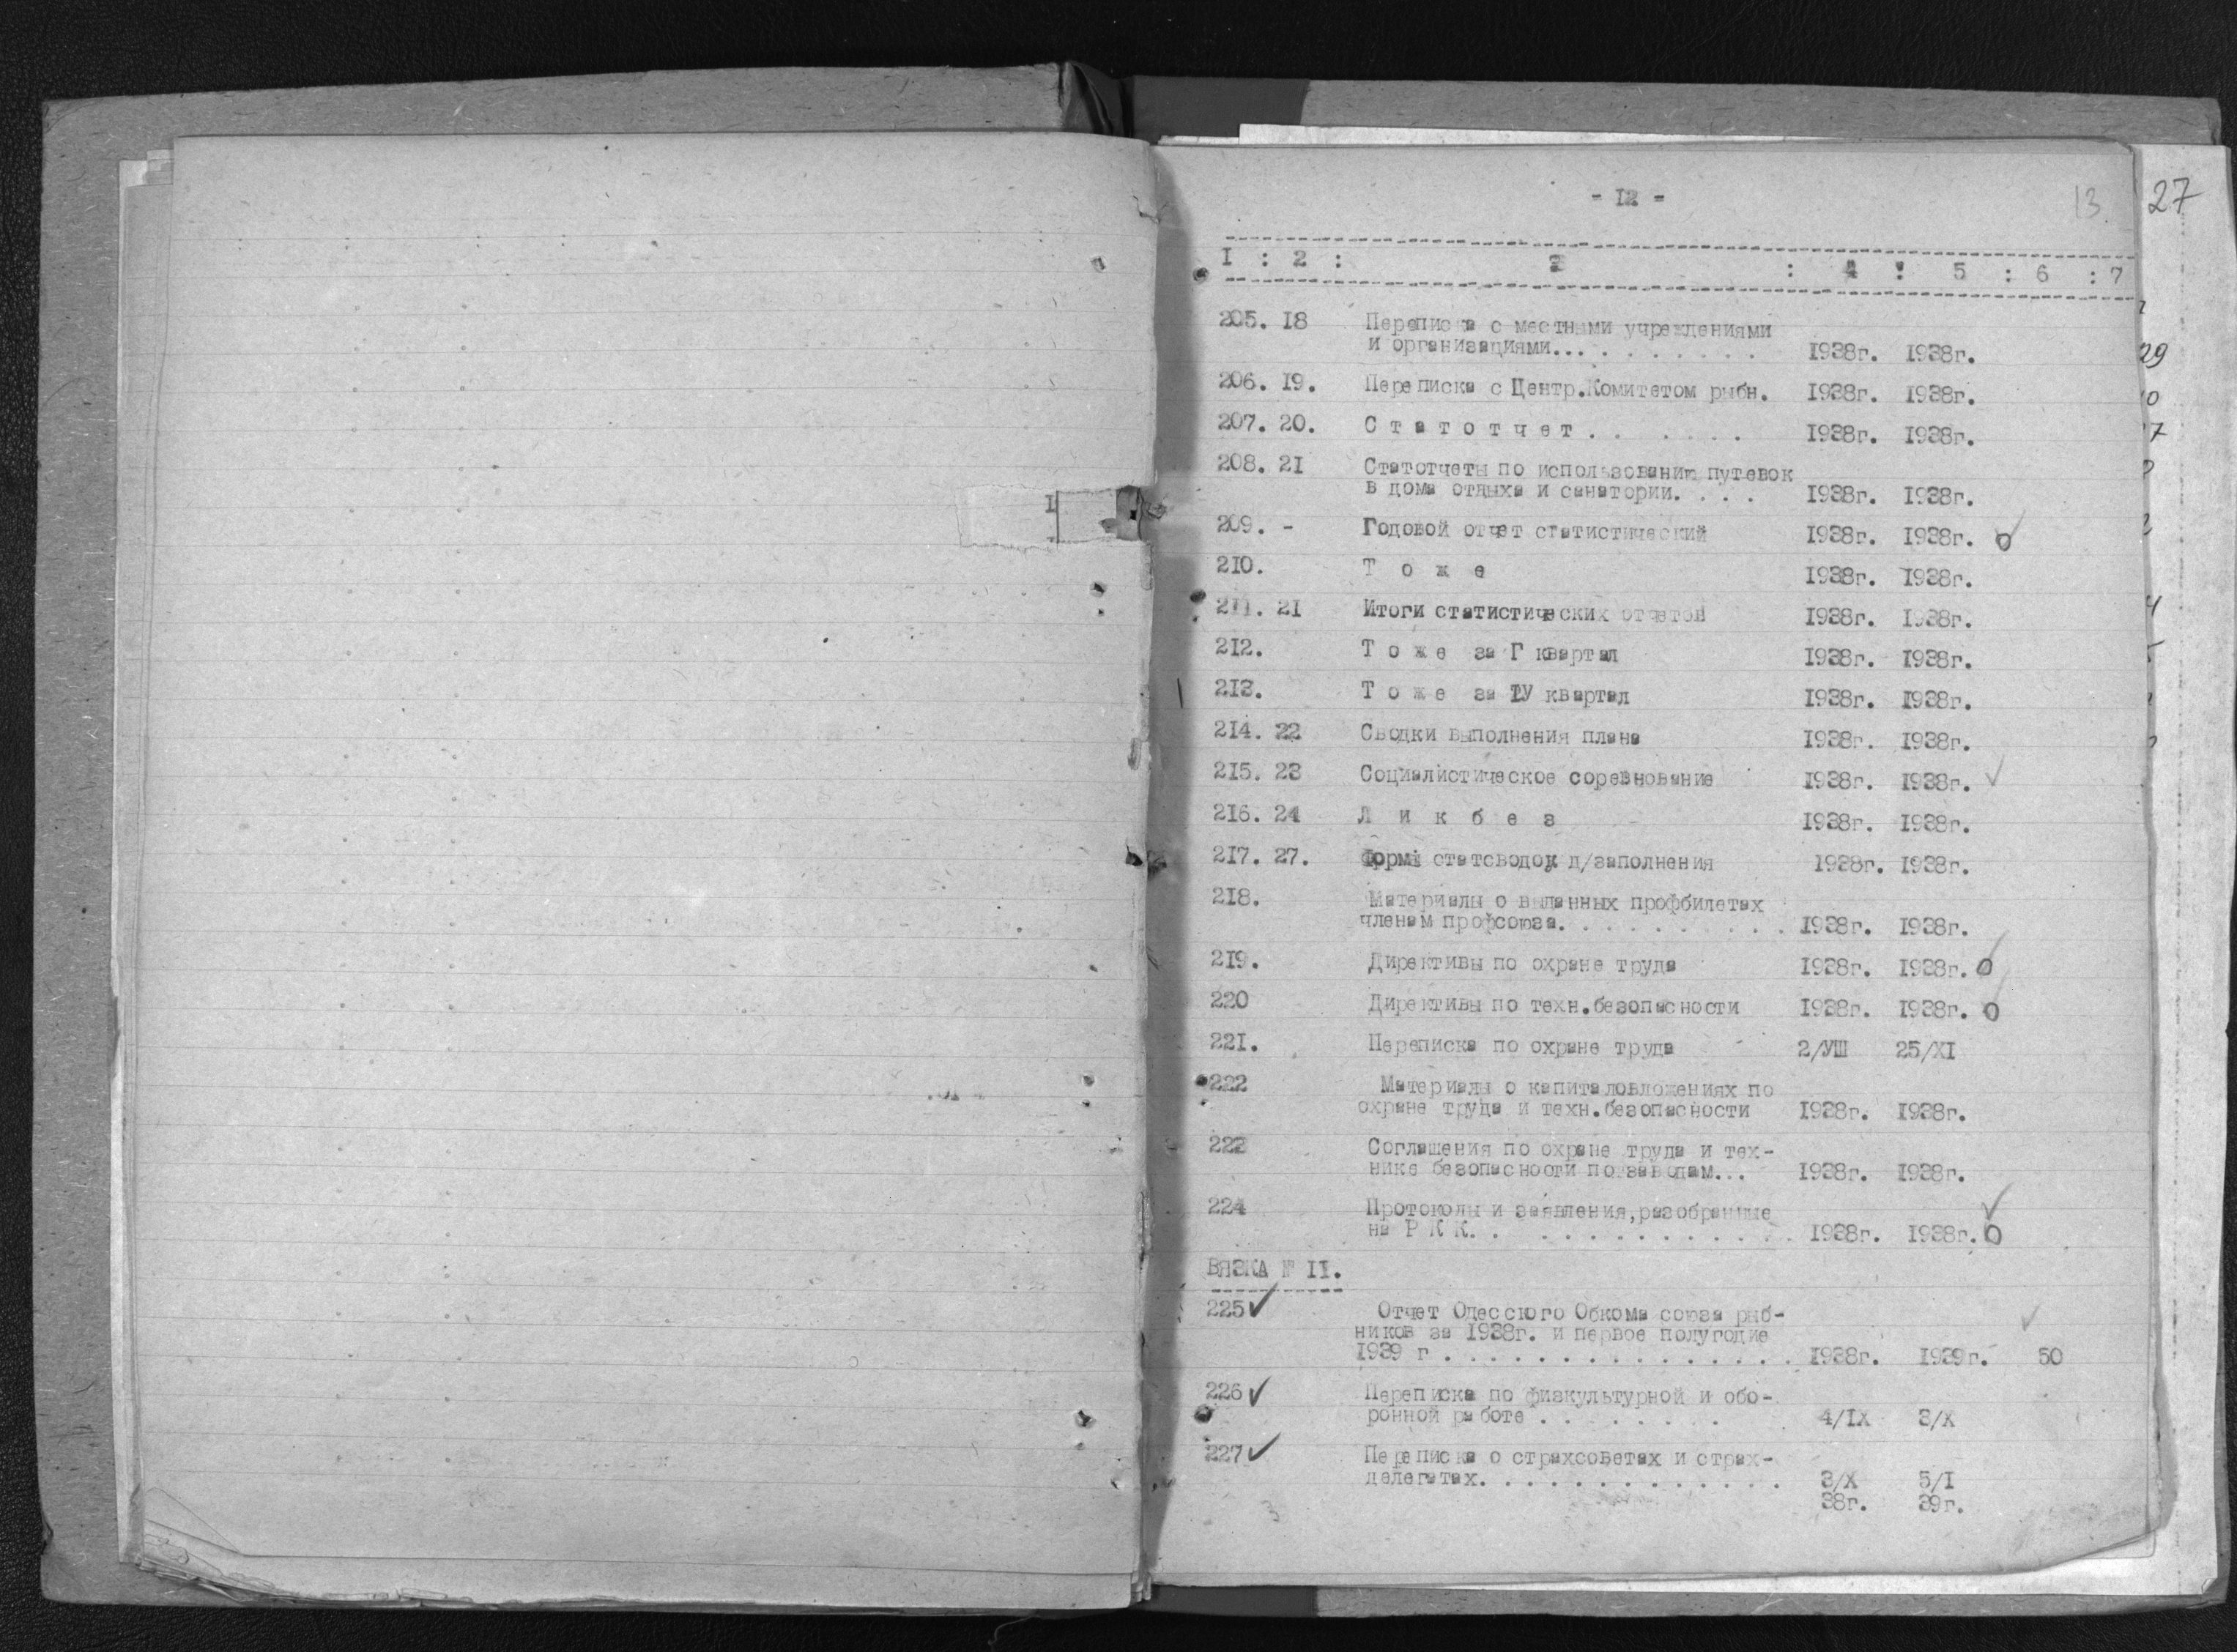 - 12 -
13
27
I : 2 : 3 : 4 : 5 : 6 : 7
205. I8 Переписка с местными учреждениями
и организациями... . . . . . . . I938г. I938г.
206. I9. Переписка с Центр.Комитетом рыбн. I938г. I938г.
207. 20. С т а т о т ч е т . . . . . . I938г. I938г.
208. 2I Статотчеты по использованию путевок
в дома отдыха и санатории. . . . I938г. I938г.
209. - Годовой отчет статистический I938г. I938г. ✓ о
2I0. Т о ж е I938г. I938г.
2II. 2I Итоги статистических отчетов I938г. I938г.
2I2. Т о ж е за I квартал I938г. I938г.
2I3. Т о ж е за IУ квартал I938г. I938г.
2I4. 22 Сводки выполнения плана I938г. I938г.
2I5. 23 Социалистическое соревнование I938г. I938г. ✓
2I6. 24 Л и к б е з I938г. I938г.
2I7. 27. Формы статсводок д/заполнения I938г. I938г.
2I8. Материалы о выданных профбилетах
членам профсоюза. . . . . . . . . . I938г. I938г.
2I9. Директивы по охране труда I938г. I938г. о
220 Директивы по техн.безопасности I938г. I938г. о
22I. Переписка по охране труда 2/УШ 25/XI
222 Материалы о капиталовложениях по
охране труда и техн.безопасности I938г. I938г.
223 Соглашения по охране труда и тех-
нике безопасности по заводам... I938г. I938г.
224 Протоколы и заявления,разобранные ✓
на Р К К. . . . . . . . . . . . . I938г. I938г. о
ВЯЗКА № II.
225 ✓ Отчет Одесского Обкома союза рыб-
ников за I938г. и первое полугодие
I939 г . . . . . . . . . . . . . . . I938г. I939г. 50
226 ✓ Переписка по физкультурной и обо-
ронной работе . . . . . . . . 4/IX 3/X
227 ✓ Переписка о страхсоветах и страх-
делегатах. . . . . . . . . . . . . 3/X 5/I
38г. 39г.